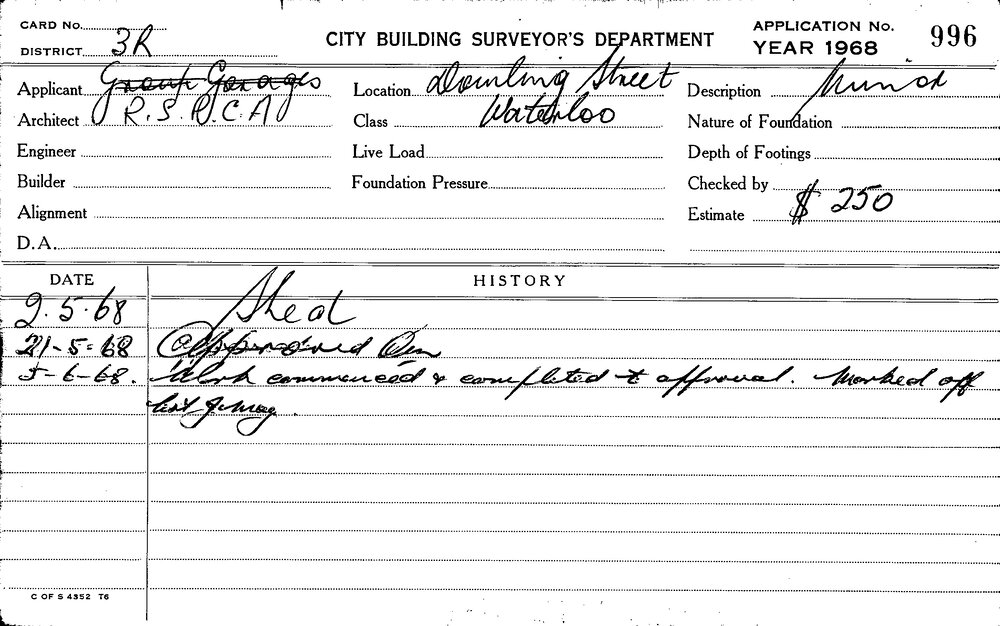 CARD No. APPLICATION No. 996
DISTRICT 3R CITY BUILDING SURVEYOR'S DEPARTMENT YEAR 1968
Applicant Group Garages Location Dowling Street Description Minor
Architect R.S.P.C.A Class Waterloo Nature of Foundation
Engineer Live Load Depth of Footings
Builder Foundation Pressure Checked by
Alignment Estimate $ 250
D.A.
DATE HISTORY
2.5.68 Shed
21-5-68 Approved
5-6-68. Work commenced & completed to approval. Marked off
list
C OF S 4352 T6